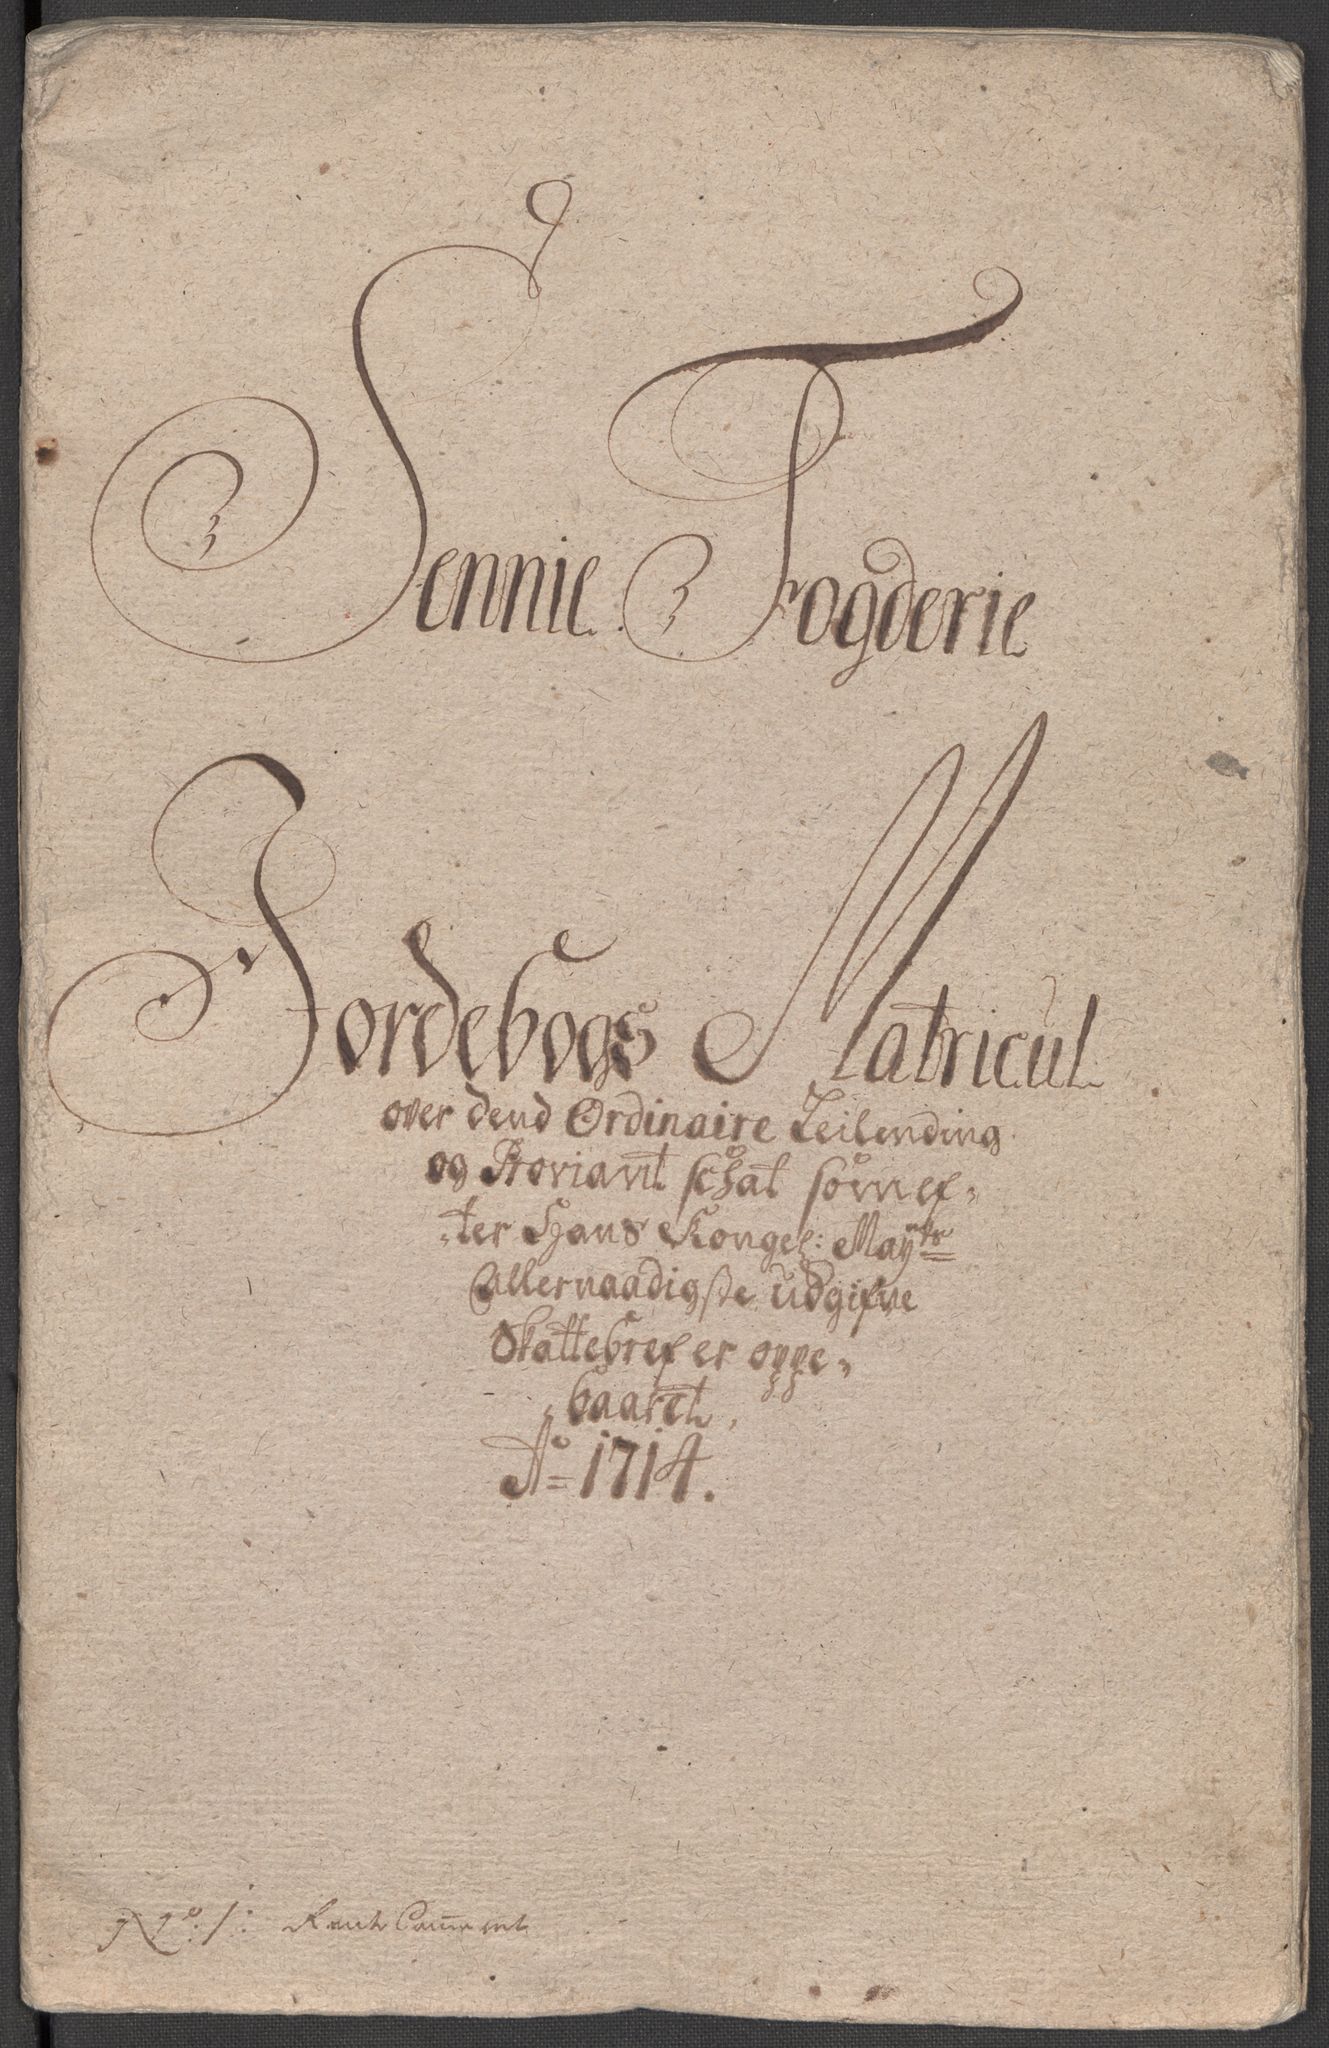 Sennie Fogderie
Jordebogs Matricul
over dend Ordinaire Leilending
og Proviant schat som ef-
-ter Hans Kongel: Mayts
Allernaadigste udgifne
Skattebref er oppe-
-baaret,
Ao 1714.